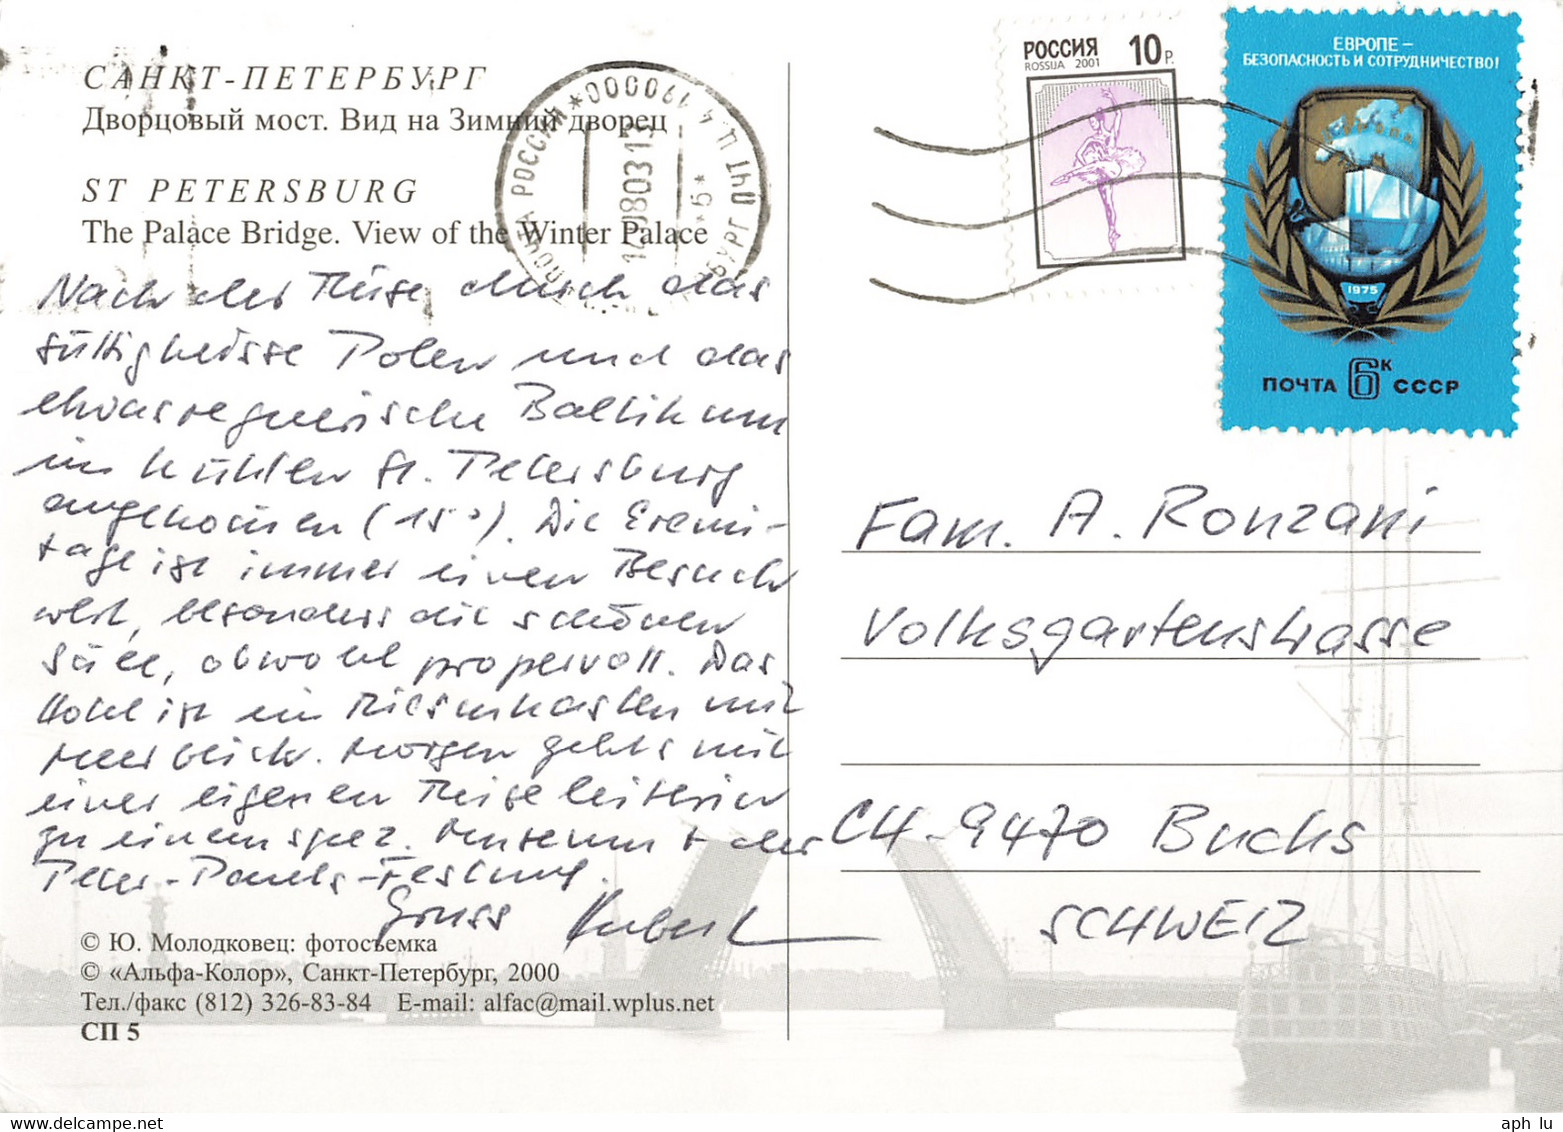 САНКТ-ПЕТЕРБУРГ
Дворцовый мост. Вид на Зимний дворец
ST PETERSBURG
The Palace Bridge. View of the Winter Palace
Nach der Reise durch das
süttigheisse Polen und das
etwas regnerische Baltikum
im kühlen St. Petersburg
angekommen (15°). Die Eremi-
tage ist immer einen Besuch
wert, besonders die schönen
Säle, obwohl propervoll. Das
Hotel ist ein Riesenkasten mit
Meerblick. Morgen gehts mit
einer eigenen Reiseleiterin
zu einem spez. Museum + der
Peter-Pauls-Festung.
Gruss Hubert
© Ю. Молодковец: фотосъемка
© «Альфа-Колор», Санкт-Петербург, 2000
Тел./факс (812) 326-83-84 E-mail: alfac@mail.wplus.net
СП 5
РОССИЯ 10 Р.
ROSSIJA 2001
ЕВРОПЕ –
БЕЗОПАСНОСТЬ И СОТРУДНИЧЕСТВО!
1975
ПОЧТА 6 К СССР
РОССИЯ
Fam. A. Ronzani
Volksgartenstrasse
CH-9470 Buchs
SCHWEIZ
aph lu